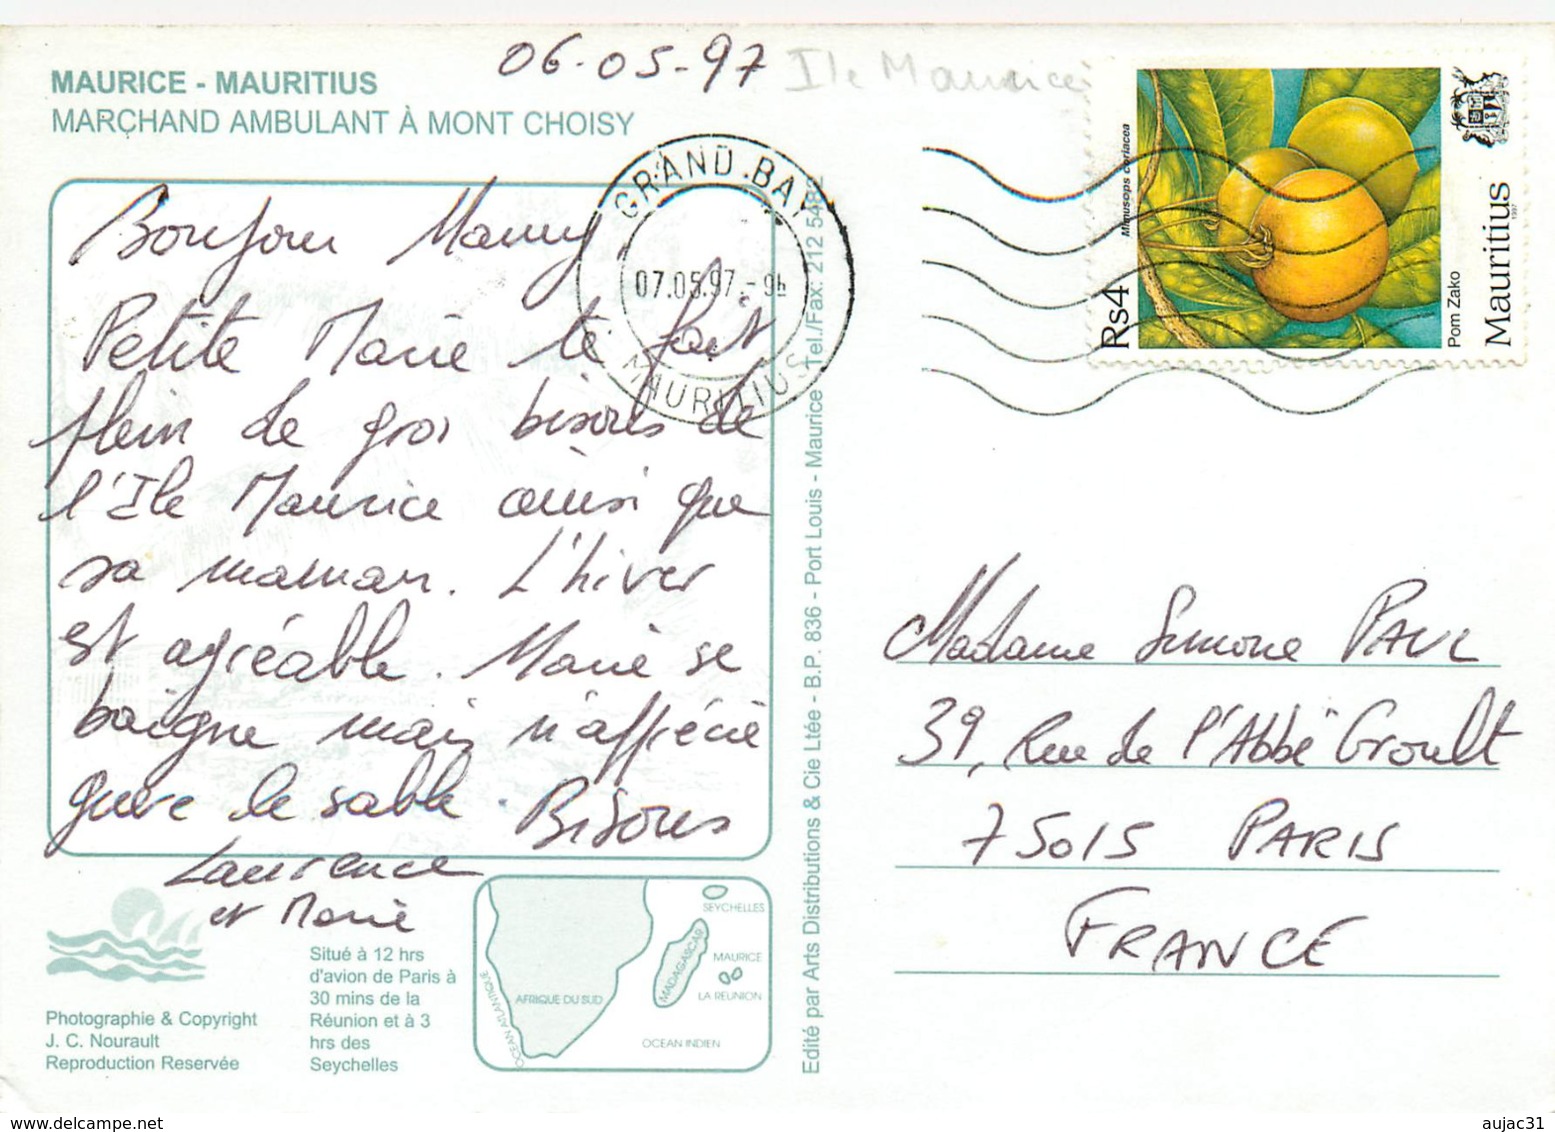 06-05-97
Ile Maurice
MAURICE - MAURITIUS
MARCHAND AMBULANT À MONT CHOISY
Bonjour Mamy
Petite Marie te fait
plein de gros bisous de
l'Ile Maurice ainsi que
sa maman. L'hiver
est agréable. Marie se
baigne mais n'apprécie
guère le sable. Bisous
Laurence
et Marie
GRAND.BAY
07.05.97.-9h
MAURITIUS
Mimusops coriacea
Rs4
Pom Zako
Mauritius
1997
Edité par Arts Distributions & Cie Ltée - B.P. 836 - Port Louis - Maurice Tel./Fax: 212 5482
Madame Simone PAUL
39, Rue de l'Abbé Groult
75015 PARIS
FRANCE
Photographie & Copyright
J. C. Nourault
Reproduction Reservée
Situé à 12 hrs
d'avion de Paris à
30 mins de la
Réunion et à 3
hrs des
Seychelles
SEYCHELLES
MADAGASCAR
MAURICE
LA REUNION
AFRIQUE DU SUD
OCEAN ATLANTIQUE
OCEAN INDIEN
www.delcampe.net
aujac31